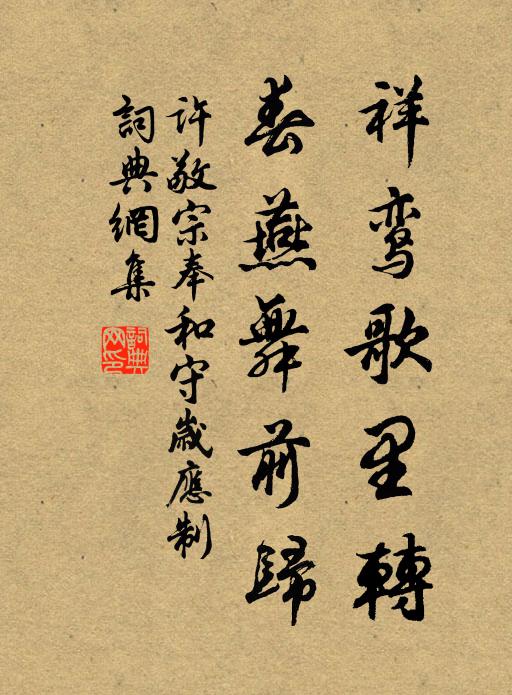 祥鸾歌里轉
春燕舞前歸
许敬宗奉和守歲應制
詞典網集
詞典网印